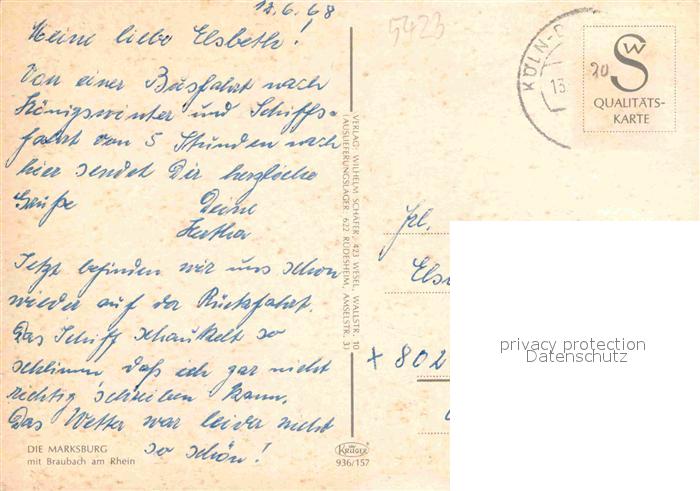 12.6.68
Meine liebe Elsbeth!
Von einer Busfahrt nach
Königswinter und Schiffs-
fahrt von 5 Stunden nach
hier sendet Dir herzliche
Grüße Deine
Hertha
Jetzt befinden wir uns schon
wieder auf der Rückfahrt.
Das Schiff schaukelt so
schlimm daß ich gar nicht
richtig schreiben kann.
Das Wetter war leider nicht
so schön!
DIE MARKSBURG
mit Braubach am Rhein
VERLAG: WILHELM SCHÄFER, 423 WESEL, WALLSTR. 10
(AUSLIEFERUNGSLAGER: 622 RÜDESHEIM, AMSELSTR. 3)
Krüger
936/157
5423
KÖLN-
13
20
SW
QUALITÄTS-
KARTE
Frl.
Els
x 802
privacy protection
Datenschutz